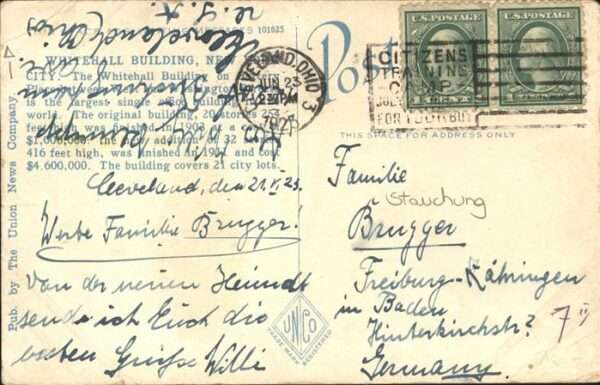 Cleveland, Ohio
U.S.A.
101625
WHITEHALL BUILDING, NEW
CITY. The Whitehall Building on
is the largest single
world. The original building, 20 stories, 254
feet high was finished in 1903 at a cost
$1,000,000. The addition of 32
416 feet high, was finished in 1911 and cost
$4,600,000. The building covers 21 city lots.
Pub. by The Union News Company
Cleveland, den 21.VI.23.
Werte Familie Brugger!
Von der neuen Heimat
sende ich Euch die
besten Grüße Willi
Post
CLEVELAND, OHIO 3
JUN 23
PM
CITIZENS
TRAINING
CAMP
U.S. POSTAGE
U.S. POSTAGE
THIS SPACE FOR ADDRESS ONLY
Familie
Stauchung
Brugger
Freiburg-Zähringen
in Baden
Hinterkirchstr. 7
Germany.
UNCo
TRADE MARK
REGISTERED